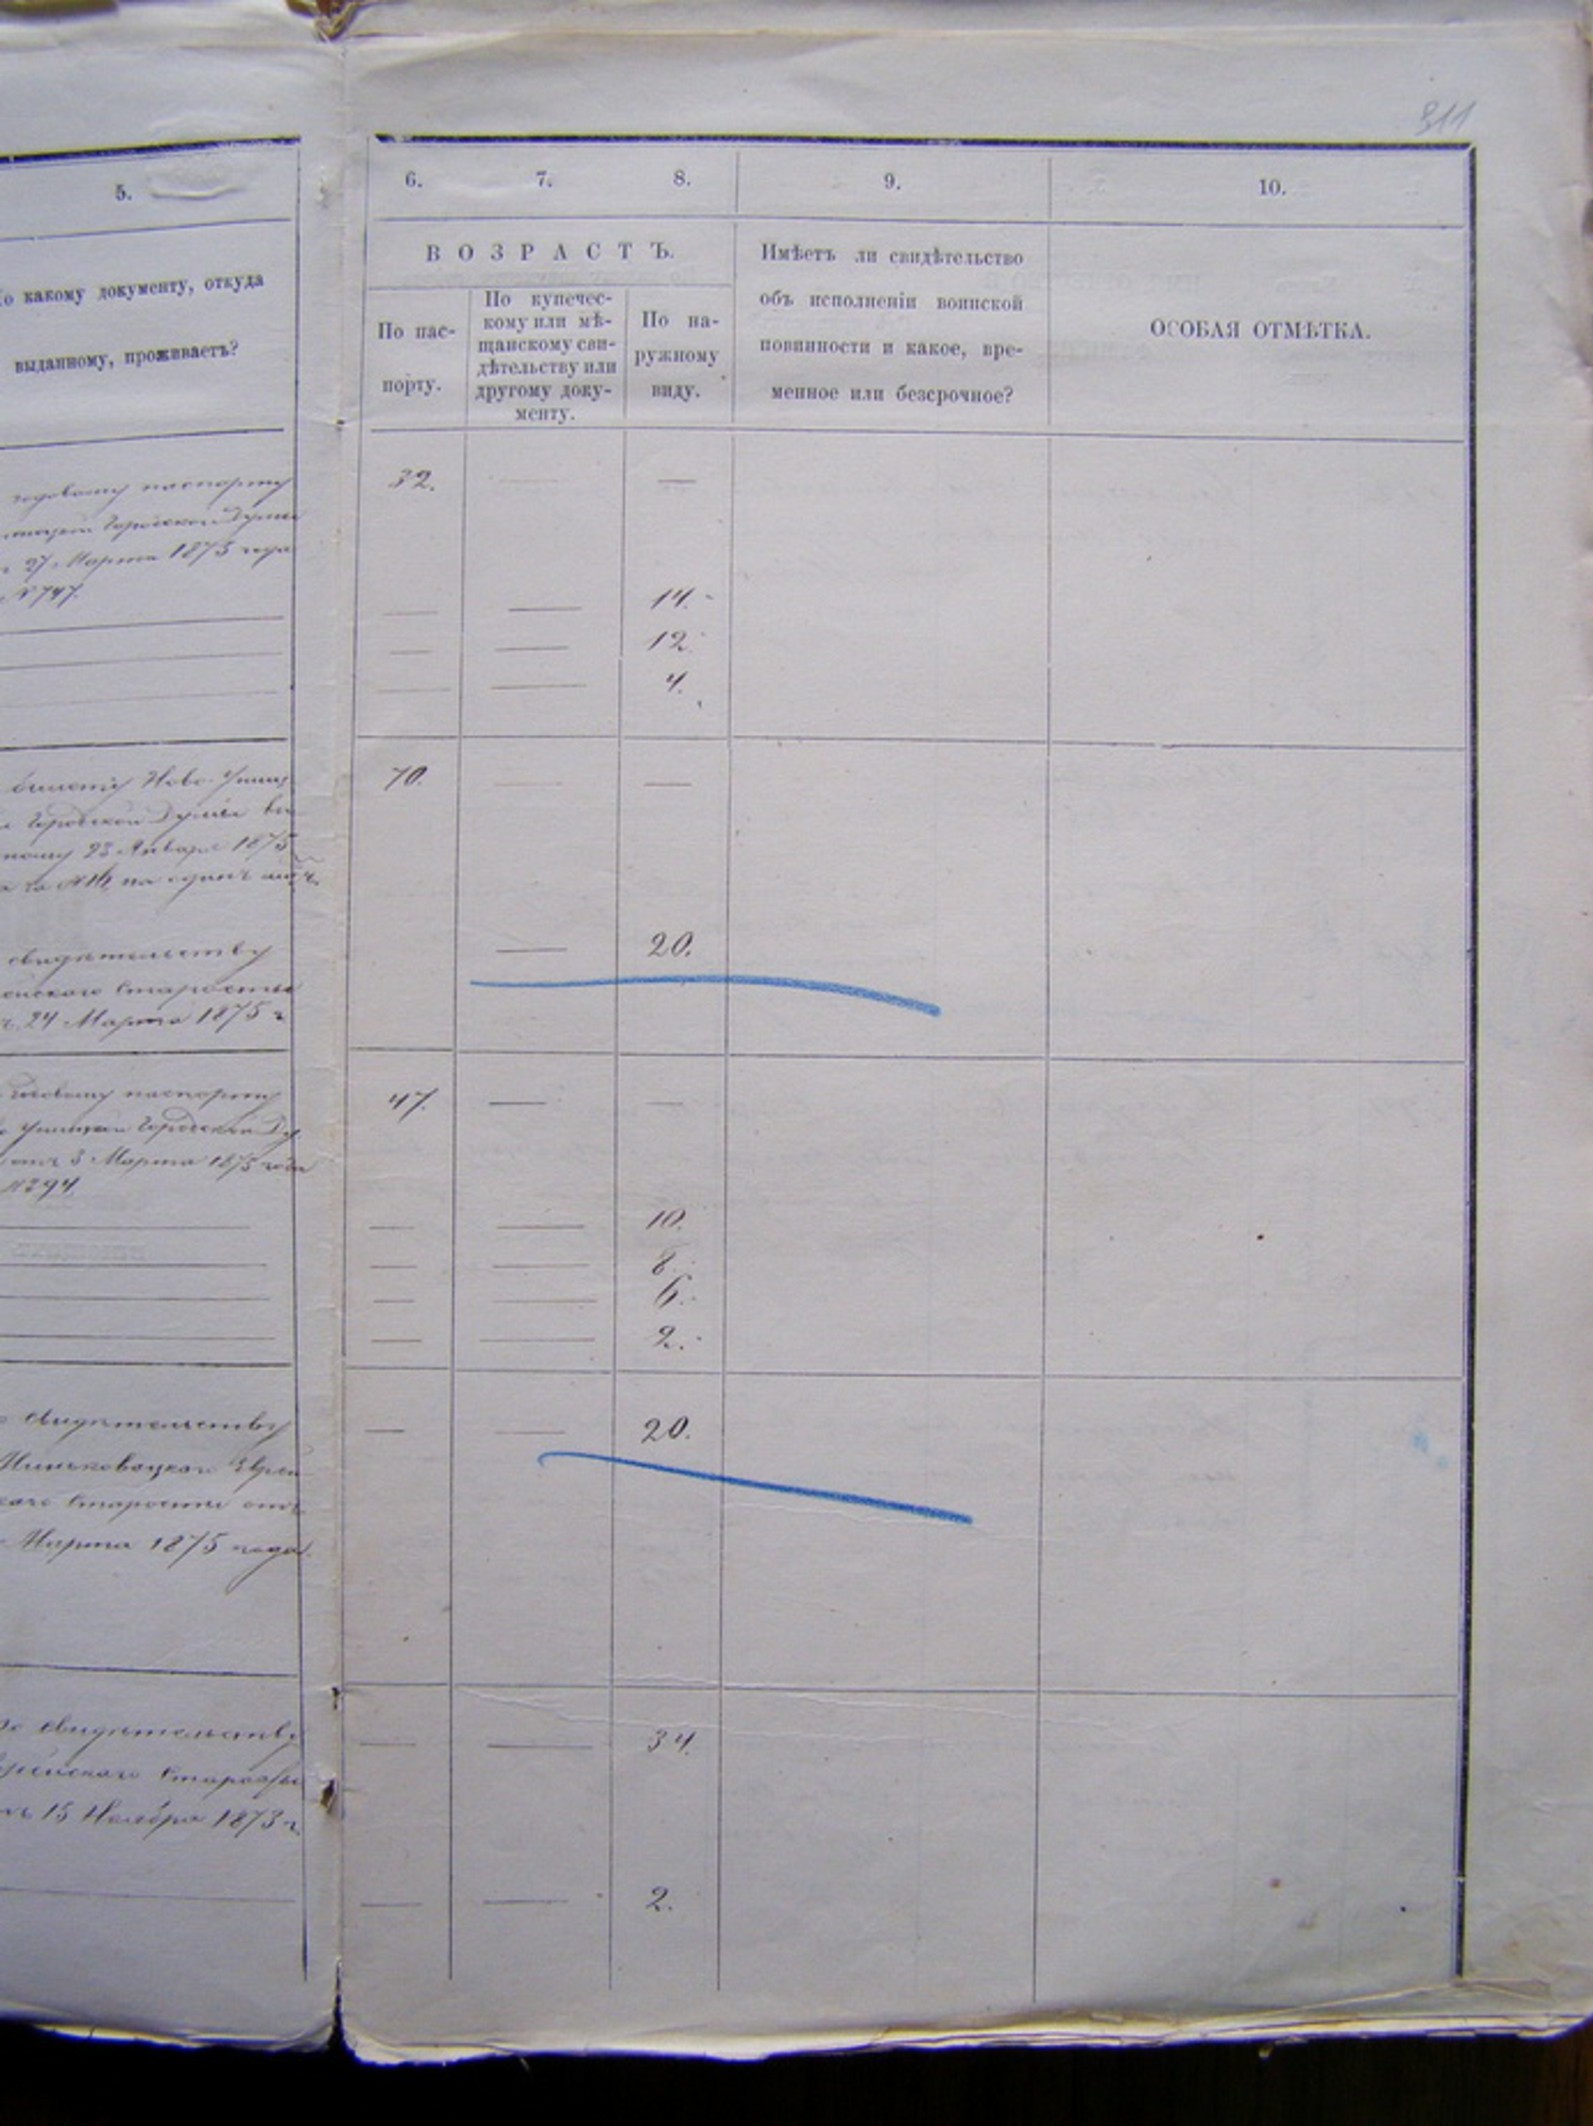 311
5. 6. 7. 8. 9. 10.
о какому документу, откуда
выданному, проживаетъ?
ВОЗРАСТЪ.
По пас-
порту.
По купечес-
кому или мѣ-
щанскому сви-
дѣтельству или
другому доку-
менту.
По на-
ружному
виду.
Имѣетъ ли свидѣтельство
объ исполненіи воинской
повинности и какое, вре-
менное или безсрочное?
ОСОБАЯ ОТМѢТКА.
годовому паспорту 32. — —
Городской Думы
27 Марта 1875 года
№ 747.
— — 14.
— — 12.
— — 4.
билету Ново-Ушиц 70. — —
Городской Думы вы
23 Января 1875
на одинъ
свидѣтельству — 20.
Старосты
24 Марта 1875 г
паспорту 47. — —
Городской Ду
отъ 3 Марта 1875 года
№ 294
— — 10.
— — 8.
— — 6.
— — 2.
свидѣтельству — — 20.
Миньковецкаго Еврей
скаго Старосты отъ
Марта 1875 года.
по свидѣтельству — — 34.
Еврейскаго Старосты
отъ 15 Ноября 1873 г.
— — 2.